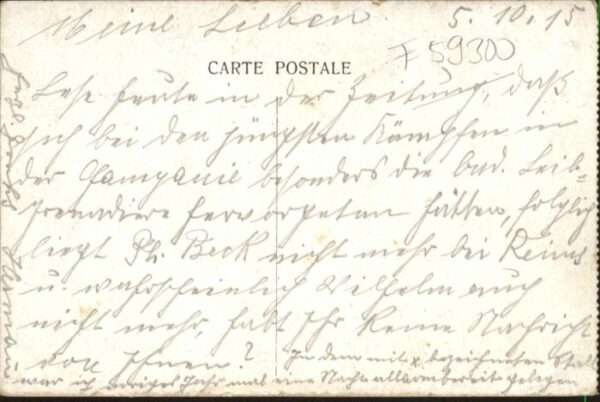 Meine Lieben. 5.10.15
F 59300
CARTE POSTALE
Lese heute in der Zeitung, daß
sich bei den jüngsten Kämpfen in
der Champanie besonders die bad. Leib-
grenadiere hervorgetan hätten, folglich
liegt Ph. Beck nicht mehr bei Reims
u. wahrscheinlich Wilhelm auch
nicht mehr, habt Ihr keine Nachricht
von Ihnen? In dem mit x bezeichneten Stall
war ich voriges Jahr mal eine Nacht alarmbereit gelegen
Herman